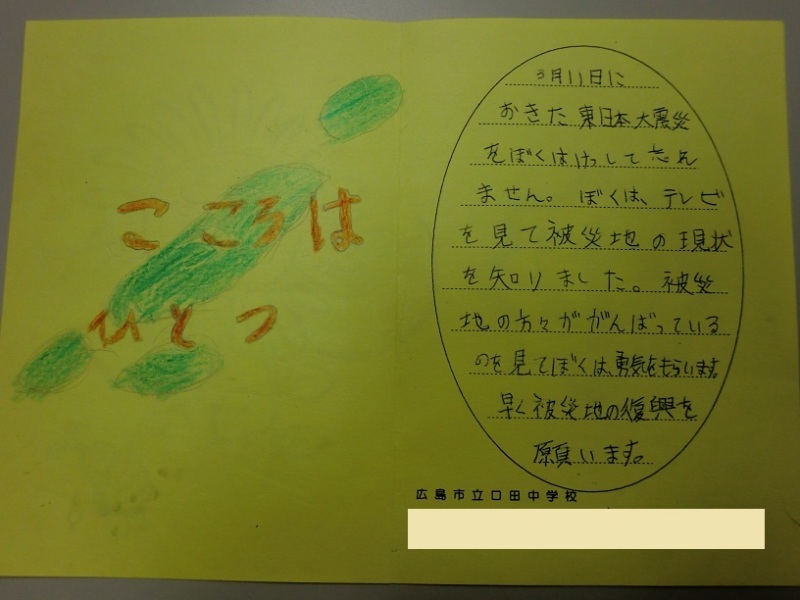 こころは
ひとつ
3月11日に
おきた東日本大震災
をぼくはけっして忘れ
ません。ぼくは、テレビ
を見て被災地の現状
を知りました。被災
地の方々ががんばっている
のを見てぼくは、勇気をもらいます。
早く被災地の復興を
願います。
広島市立口田中学校